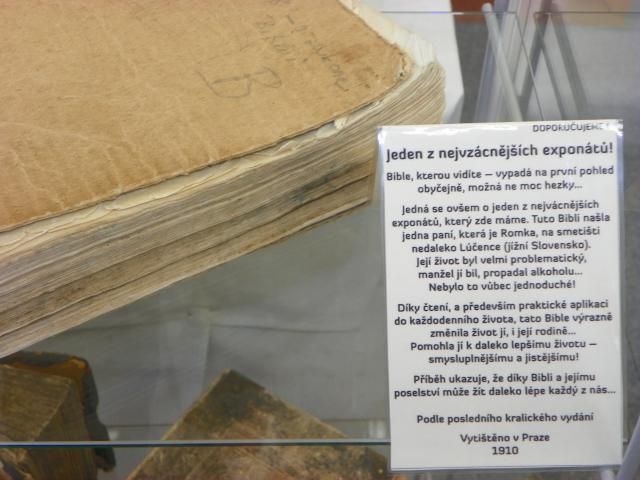 B
DOPORUČUJEME!
Jeden z nejvzácnějších exponátů!
Bible, kterou vidíte – vypadá na první pohled
obyčejně, možná ne moc hezky...
Jedná se ovšem o jeden z nejvácnějších
exponátů, který zde máme. Tuto Bibli našla
jedna paní, která je Romka, na smetišti
nedaleko Lúčence (jížní Slovensko).
Její život byl velmi problematický,
manžel jí bil, propadal alkoholu...
Nebylo to vůbec jednoduché!
Díky čtení, a především praktické aplikaci
do každodenního života, tato Bible výrazně
změnila život jí, i její rodině...
Pomohla jí k daleko lepšímu životu –
smysluplnějšímu a jistějšímu!
Příběh ukazuje, že díky Bibli a jejímu
poselství může žít daleko lépe každý z nás...
Podle posledního kralického vydání
Vytištěno v Praze
1910